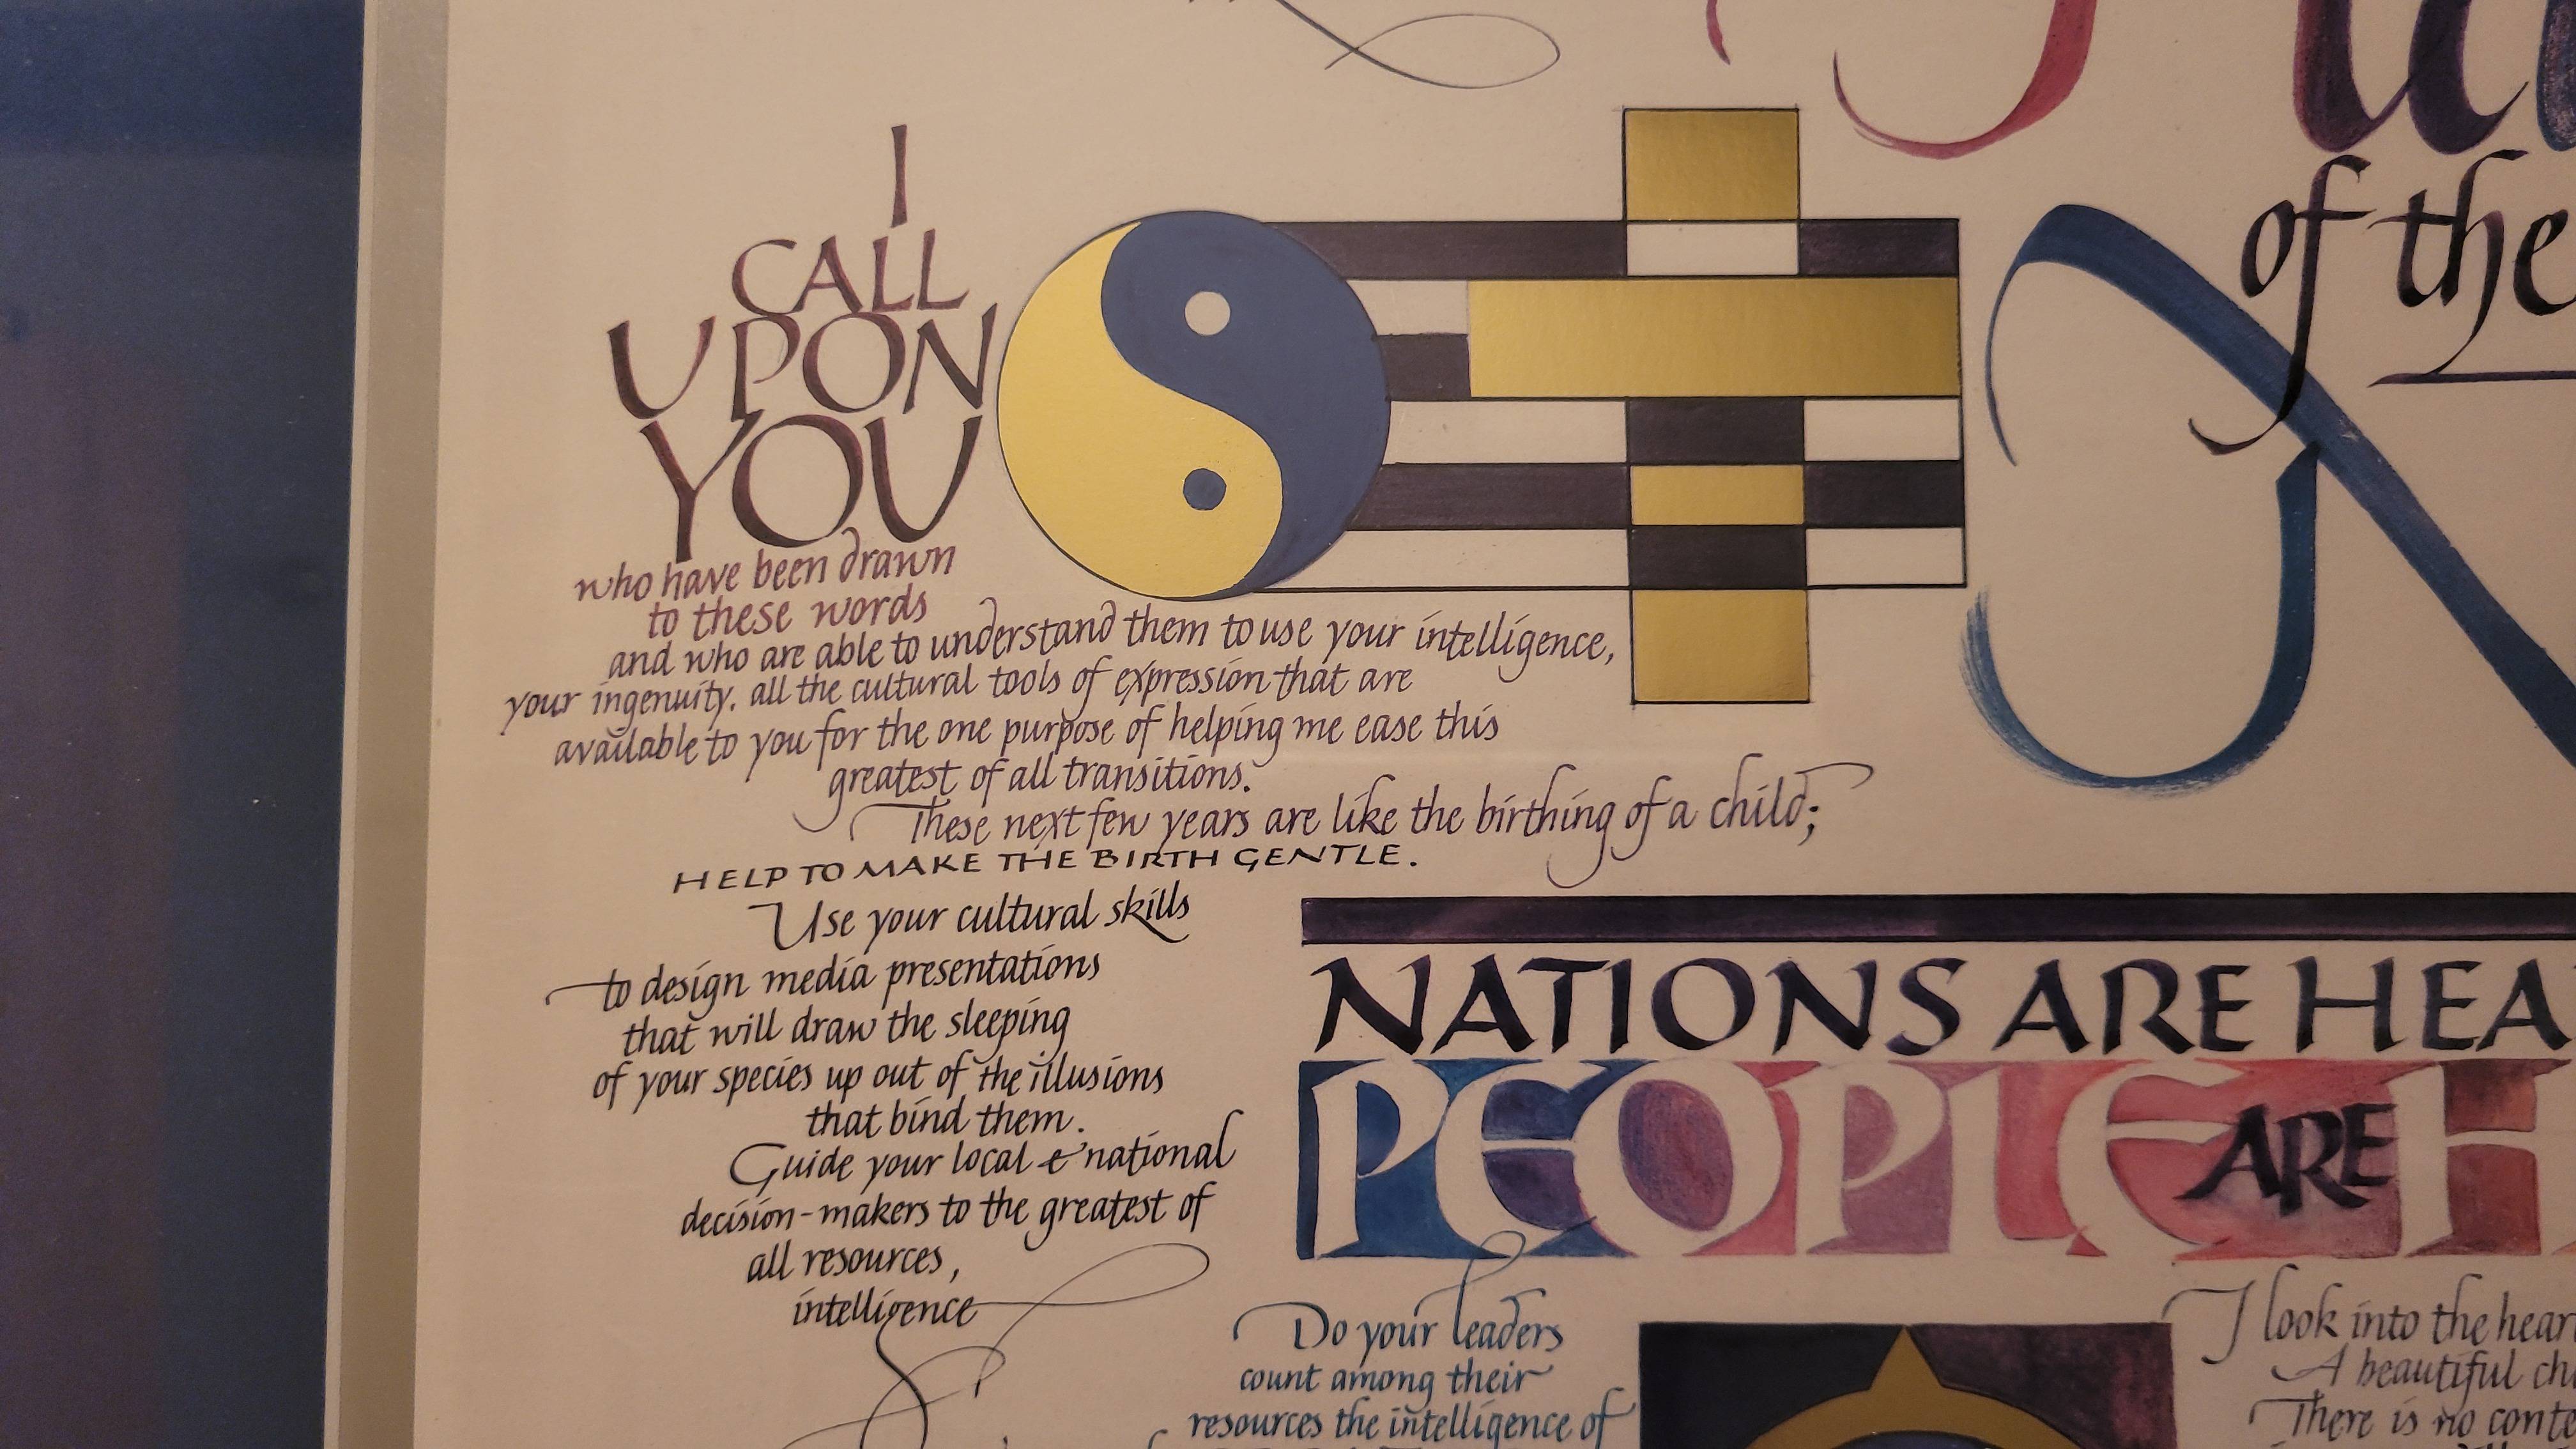 of the
I
CALL
UPON
YOU
who have been drawn
to these words
and who are able to understand them to use your intelligence,
your ingenuity, all the cultural tools of expression that are
available to you for the one purpose of helping me ease this
greatest of all transitions.
These next few years are like the birthing of a child;
HELP TO MAKE THE BIRTH GENTLE.
Use your cultural skills
to design media presentations
that will draw the sleeping
of your species up out of the illusions
that bind them.
Guide your local & national
decision-makers to the greatest of
all resources,
intelligence
NATIONS ARE HEA
PEOPLE ARE H
Do your leaders
count among their
resources the intelligence of
I look into the hear
A beautiful ch
There is no conte